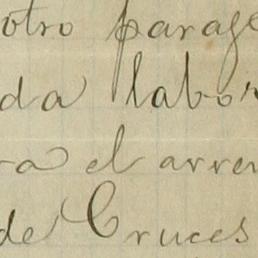 otro parage
da labor
ra el arren
de Cruces